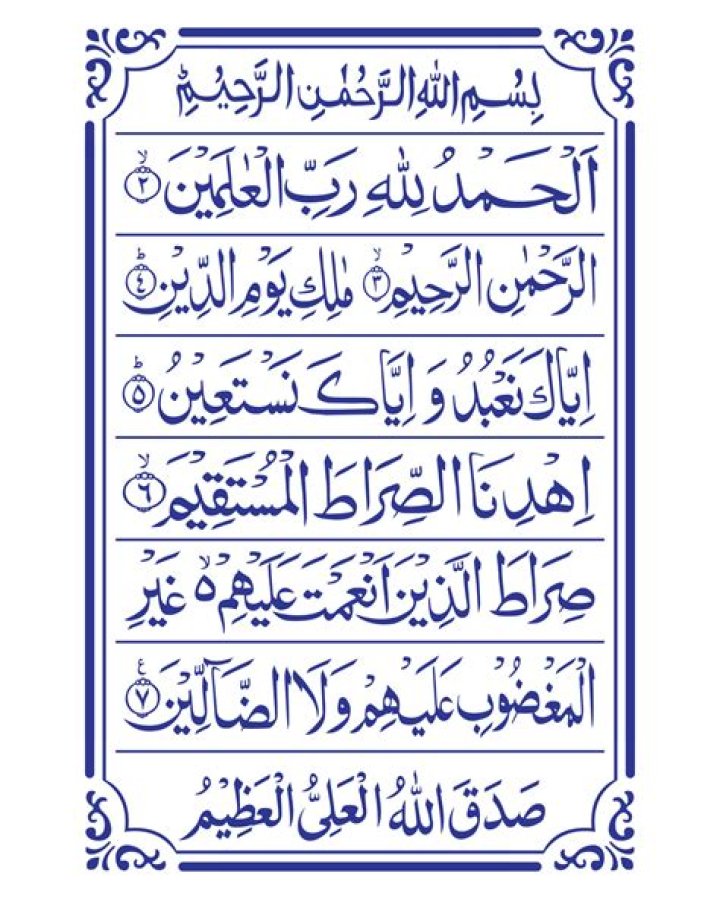 بِسْمِ اللهِ الرَّحْمٰنِ الرَّحِيْمِ ؕ
اَلْحَمْدُ لِلّٰهِ رَبِّ الْعٰلَمِيْنَ ۙ ۲
الرَّحْمٰنِ الرَّحِيْمِ ۙ ۳ مٰلِكِ يَوْمِ الدِّيْنِ ؕ ۴
اِيَّاكَ نَعْبُدُ وَ اِيَّاكَ نَسْتَعِيْنُ ؕ ۵
اِهْدِنَا الصِّرَاطَ الْمُسْتَقِيْمَ ۙ ۶
صِرَاطَ الَّذِيْنَ اَنْعَمْتَ عَلَيْهِمْ ۙ۵ غَيْرِ
الْمَغْضُوْبِ عَلَيْهِمْ وَلَا الضَّآلِّيْنَ ع ۷
صَدَقَ اللهُ الْعَلِىُّ الْعَظِيْمُ